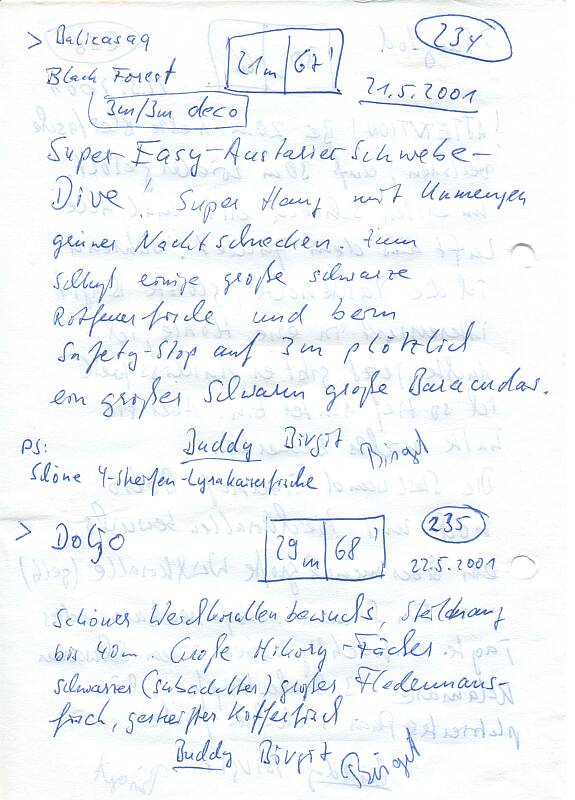 > Balicasag 21m 67' 234
Black Forest 21.5.2001
3m/3m deco
Super-Easy-Austarier-Schwebe-
Dive! Super Hang mit Unmengen
grüner Nachtschnecken. Zum
Schluß einige große schwarze
Rotfeuerfische und beim
Safety-Stop auf 3m plötzlich
ein großer Schwarm große Baracudas.
Buddy Birgit Birgit
PS:
Schöne 4-Streifen-Lyrakaiserfische
> Doljo 29m 68' 235
22.5.2001
Schöner Weichkorallenbewuchs, Steilhang
bis 40m. Große Hikory-Fächer.
schwarzer (subadulter) großer Fledermaus-
fisch, gestreifter Kofferfisch
Buddy Birgit Birgit